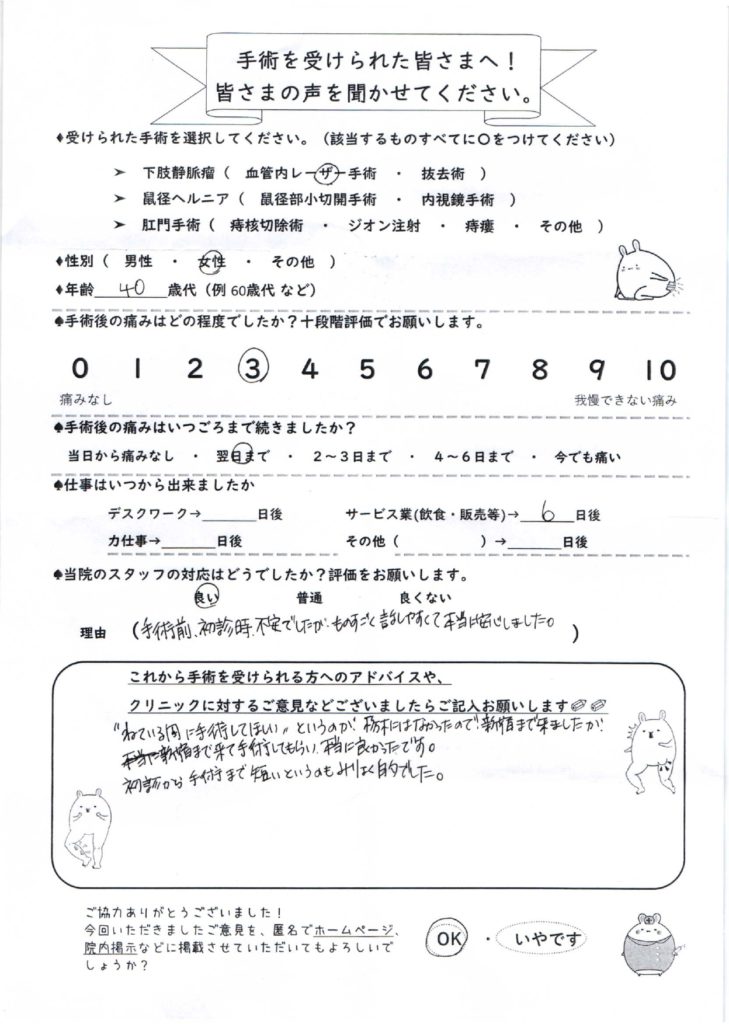 手術を受けられた皆さまへ！
皆さまの声を聞かせてください。
♦受けられた手術を選択してください。（該当するものすべてに〇をつけてください）
➤ 下肢静脈瘤（ 血管内レーザー手術 ・ 抜去術 ）
➤ 鼠径ヘルニア（ 鼠径部小切開手術 ・ 内視鏡手術 ）
➤ 肛門手術（ 痔核切除術 ・ ジオン注射 ・ 痔瘻 ・ その他 ）
♦性別（ 男性 ・ 女性 ・ その他 ）
♦年齢 40 歳代（例 60歳代 など）
♠手術後の痛みはどの程度でしたか？十段階評価でお願いします。
0 1 2 3 4 5 6 7 8 9 10
痛みなし 我慢できない痛み
♠手術後の痛みはいつごろまで続きましたか？
当日から痛みなし ・ 翌日まで ・ 2～3日まで ・ 4～6日まで ・ 今でも痛い
♠仕事はいつから出来ましたか
デスクワーク→______日後 サービス業(飲食・販売等)→ 6 日後
力仕事→______日後 その他（ ）→______日後
♠当院のスタッフの対応はどうでしたか？評価をお願いします。
良い 普通 良くない
理由 （手術前、初診時、不安でしたが、ものすごく話しやすくて本当に安心しました。）
これから手術を受けられる方へのアドバイスや、
クリニックに対するご意見などございましたらご記入お願いします
"ねている間に手術してほしい" というのが、栃木にはなかったので、新宿まで来ましたが、
新宿まで来て手術してもらい、本当に良かったです。
初診から手術まで短いというのもみりょく的でした。
ご協力ありがとうございました！
今回いただきましたご意見を、匿名でホームページ、
院内掲示などに掲載させていただいてもよろしいで
しょうか？
OK ・ いやです